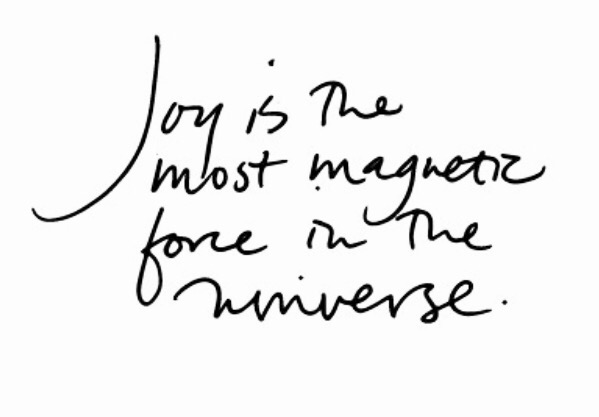 Joy is the
most magnetic
force in the
universe.